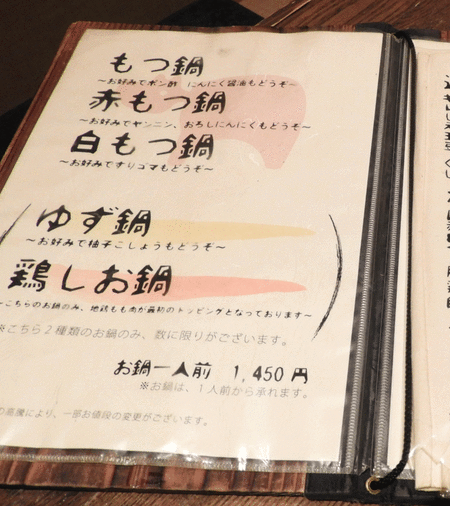 もつ鍋
～お好みでポン酢 にんにく醤油もどうぞ～
赤もつ鍋
～お好みでヤンニン、おろしにんにくもどうぞ～
白もつ鍋
～お好みですりゴマもどうぞ～
ゆず鍋
～お好みで柚子こしょうもどうぞ～
鶏しお鍋
～こちらのお鍋のみ、地鶏もも肉が最初のトッピングとなっております～
※こちら2種類のお鍋のみ、数に限りがございます。
お鍋一人前 1,450円
※お鍋は、1人前から承れます。
の高騰により、一部お値段の変更がございます。